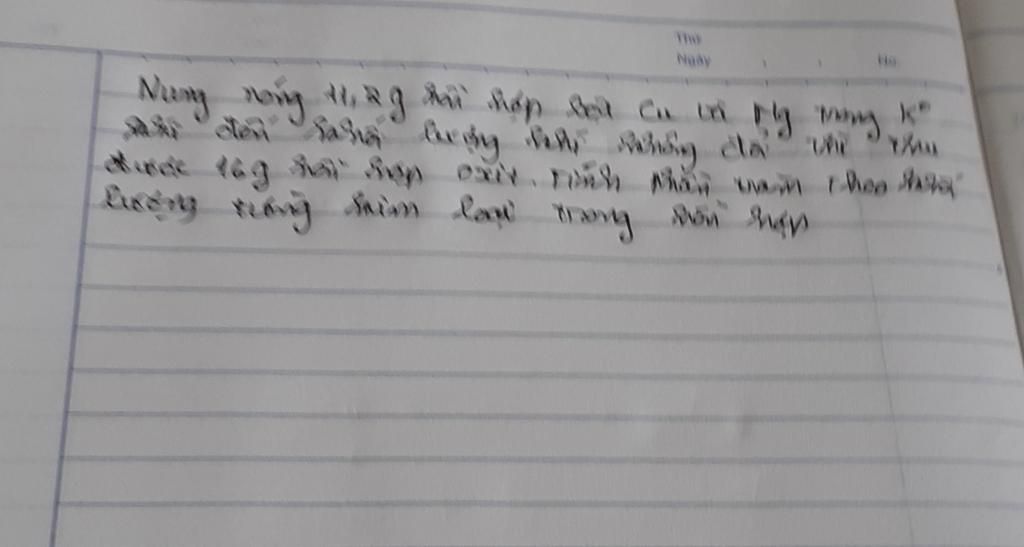 Thứ
Ngày No
Nung nóng 11,2g hỗn hợp bột Cu và Mg trong k²
khí đến khối lượng không đổi thì thu
được 16g hỗn hợp oxit. Tính phần trăm theo khối
lượng từng kim loại trong hỗn hợp